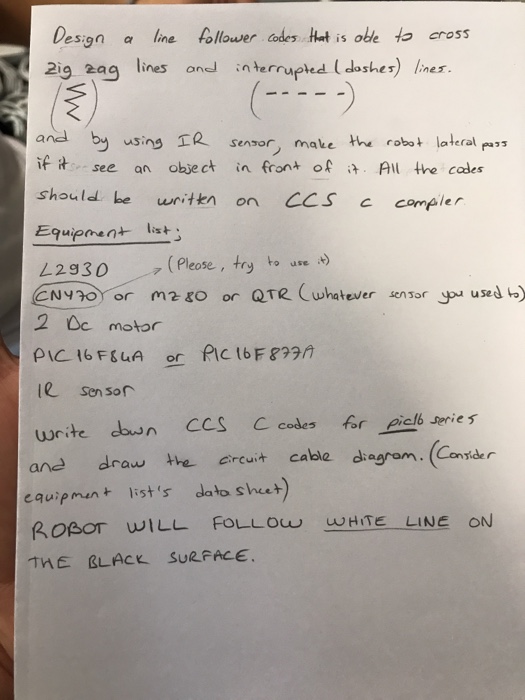 Design a line follower codes that is able to cross
zig zag lines and interrupted (dashes) lines.
(-----)
and by using IR sensor, make the robot lateral pass
if it see an object in front of it. All the codes
should be written on CCS C compiler
Equipment list;
L293D (Please, try to use it)
CNY70 or MZ80 or QTR (whatever sensor you used to)
2 Dc motor
PIC16F84A or PIC16F877A
IR sensor
Write down CCS C codes for pic16 series
and draw the circuit cable diagram. (Consider
equipment list's datasheet)
ROBOT WILL FOLLOW WHITE LINE ON
THE BLACK SURFACE.